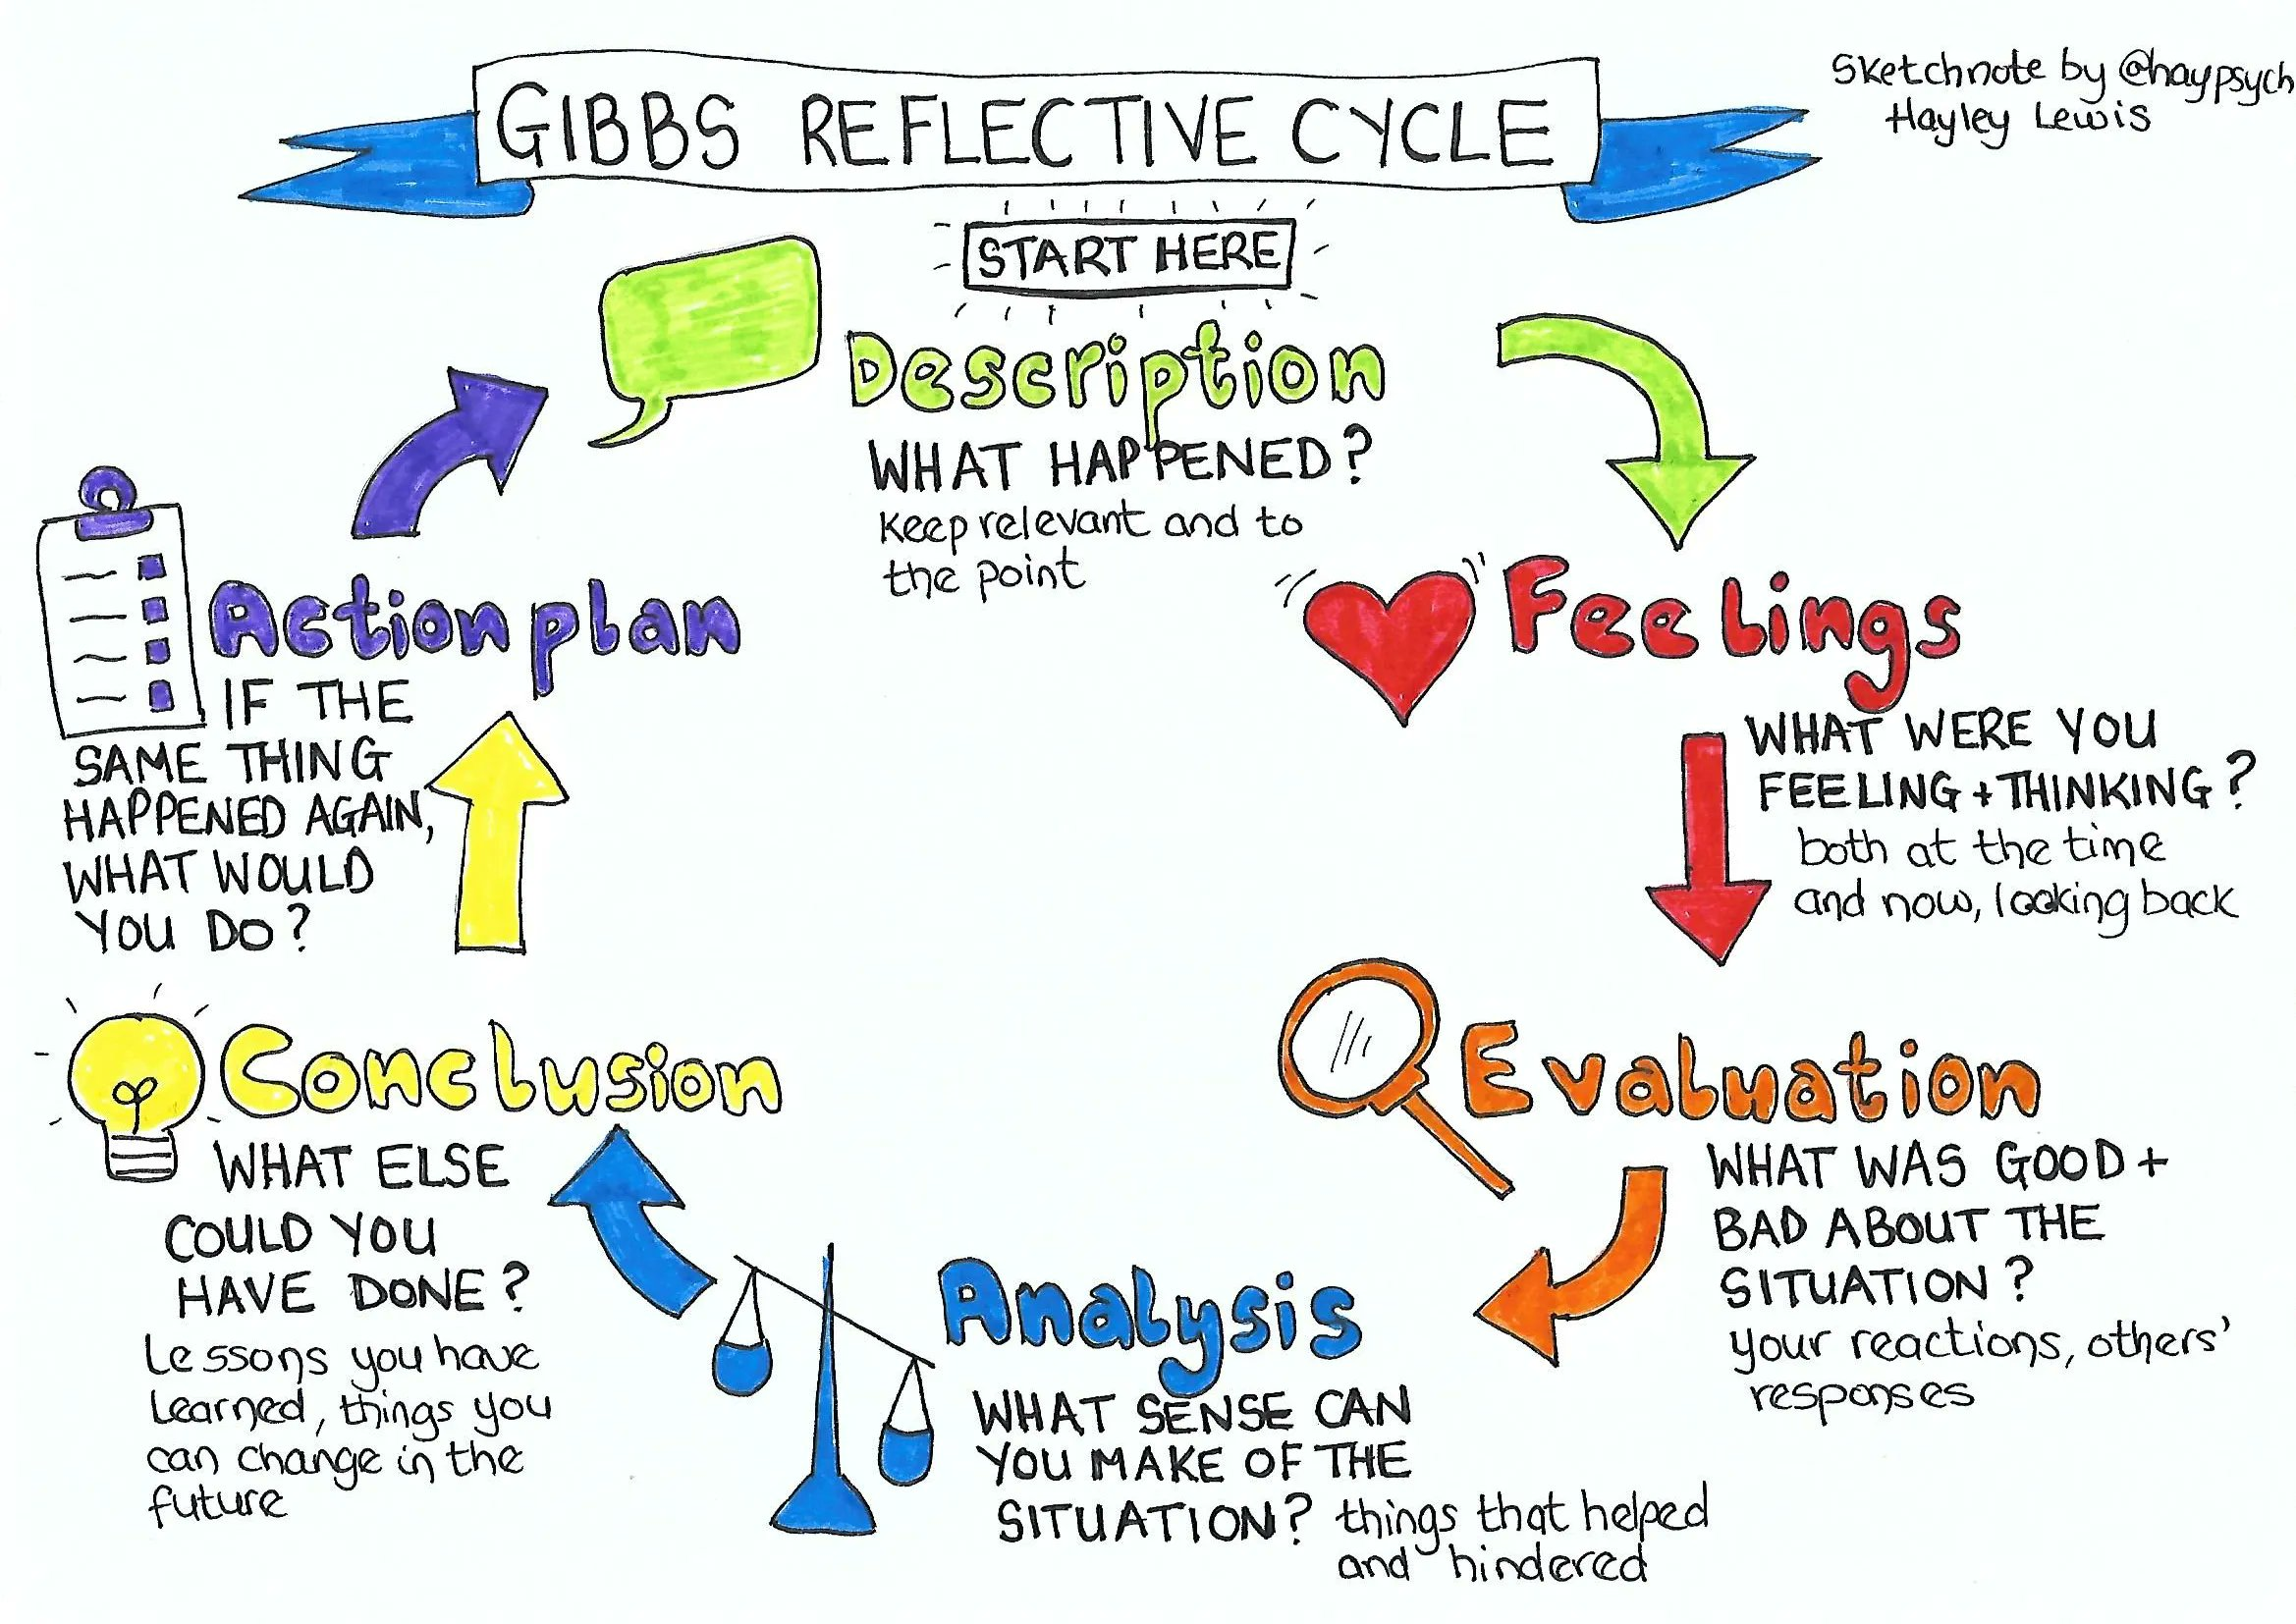 GIBBS REFLECTIVE CYCLE
Sketchnote by @haypsych
Hayley Lewis
START HERE
Description
WHAT HAPPENED?
Keep relevant and to
the point
Feelings
WHAT WERE YOU
FEELING + THINKING?
both at the time
and now, looking back
Evaluation
WHAT WAS GOOD +
BAD ABOUT THE
SITUATION?
your reactions, others'
responses
Analysis
WHAT SENSE CAN
YOU MAKE OF THE
SITUATION? things that helped
and hindered
Conclusion
WHAT ELSE
COULD YOU
HAVE DONE?
Lessons you have
learned, things you
can change in the
future
Action plan
IF THE
SAME THING
HAPPENED AGAIN,
WHAT WOULD
YOU DO?